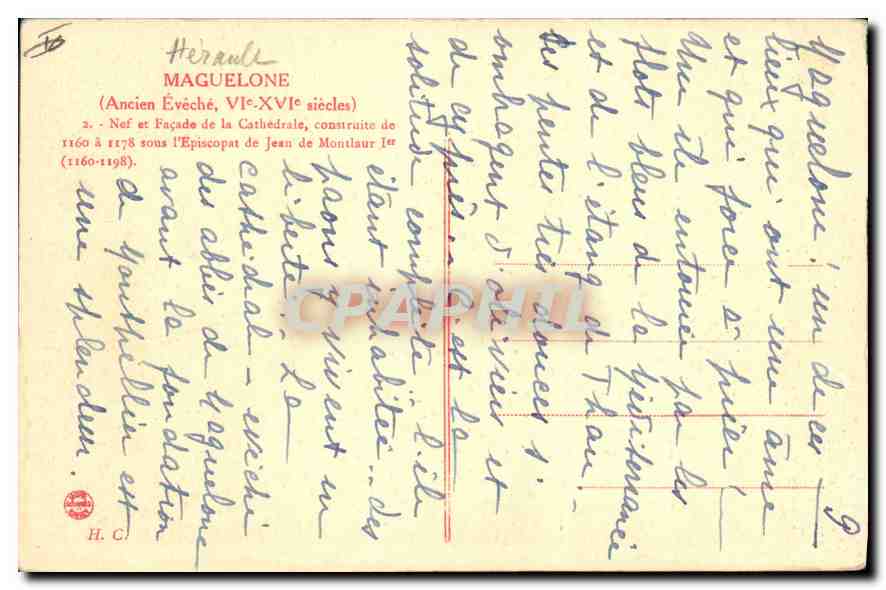 Hérault
MAGUELONE
(Ancien Évêché, VIe-XVIe siècles)
2. - Nef et Façade de la Cathédrale, construite de
1160 à 1178 sous l'Épiscopat de Jean de Montlaur Ier
(1160-1198).
H. C.
CPAPHIL
Maguelone! un de ces
lieux qui ont une âme
et qui force à prier!
Une île entourée par les
flots bleus de la Méditerranée
et de l'étang de Thau -
Ses pentes très douces s'
ombragent d'oliviers et
de cyprès.. C'est la
solitude complète.. l'île
étant inhabitée.. des
paons y vivent en
liberté. La
cathédrale - évêché
des abbés de Maguelone
avant la fondation
de Montpellier est
une splendeur.
9